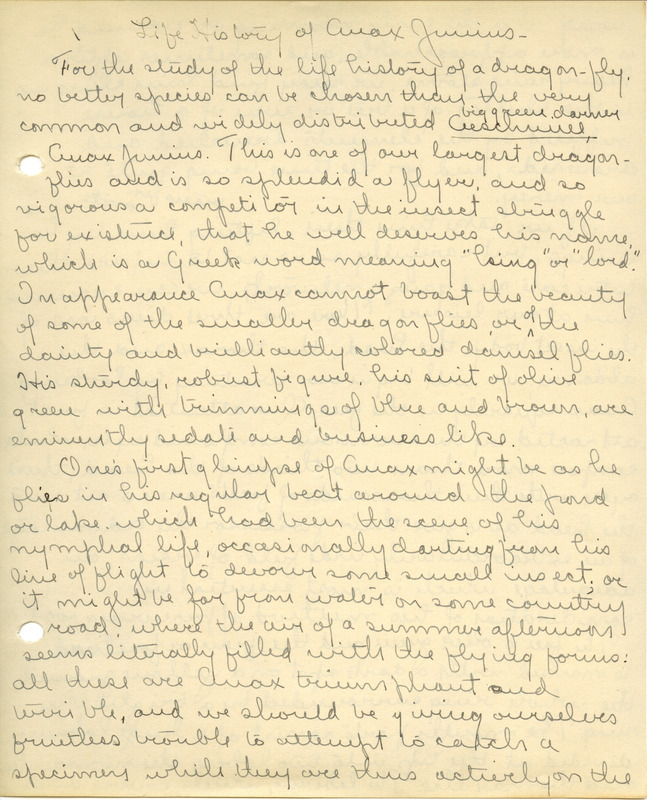 1 Life History of Anax Junius -
For the study of the life history of a dragon-fly,
no better species can be chosen than the very
big green darner
common and widely distributed Aeschnine,
Anax Junius. This is one of our largest dragon-
flies and is so splendid a flyer, and so
vigorous a competitor in the insect struggle
for existence, that he well deserves his name,
which is a Greek word meaning "king" or "lord".
In appearance Anax cannot boast the beauty
of some of the smaller dragon flies, or of the
dainty and brilliantly colored damsel flies.
His sturdy, robust figure, his suit of olive
green with trimmings of blue and brown, are
eminently sedate and business like.
One's first glimpse of Anax might be as he
flies in his regular beat around the pond
or lake which had been the scene of his
nymphal life, occasionally darting from his
line of flight to devour some small insect; or
it might be far from water on some country
road, where the air of a summer afternoon
seems literally filled with the flying forms:
all these are Anax triumphant and
terrible, and we should be giving ourselves
fruitless trouble to attempt to catch a
specimen while they are thus actively on the